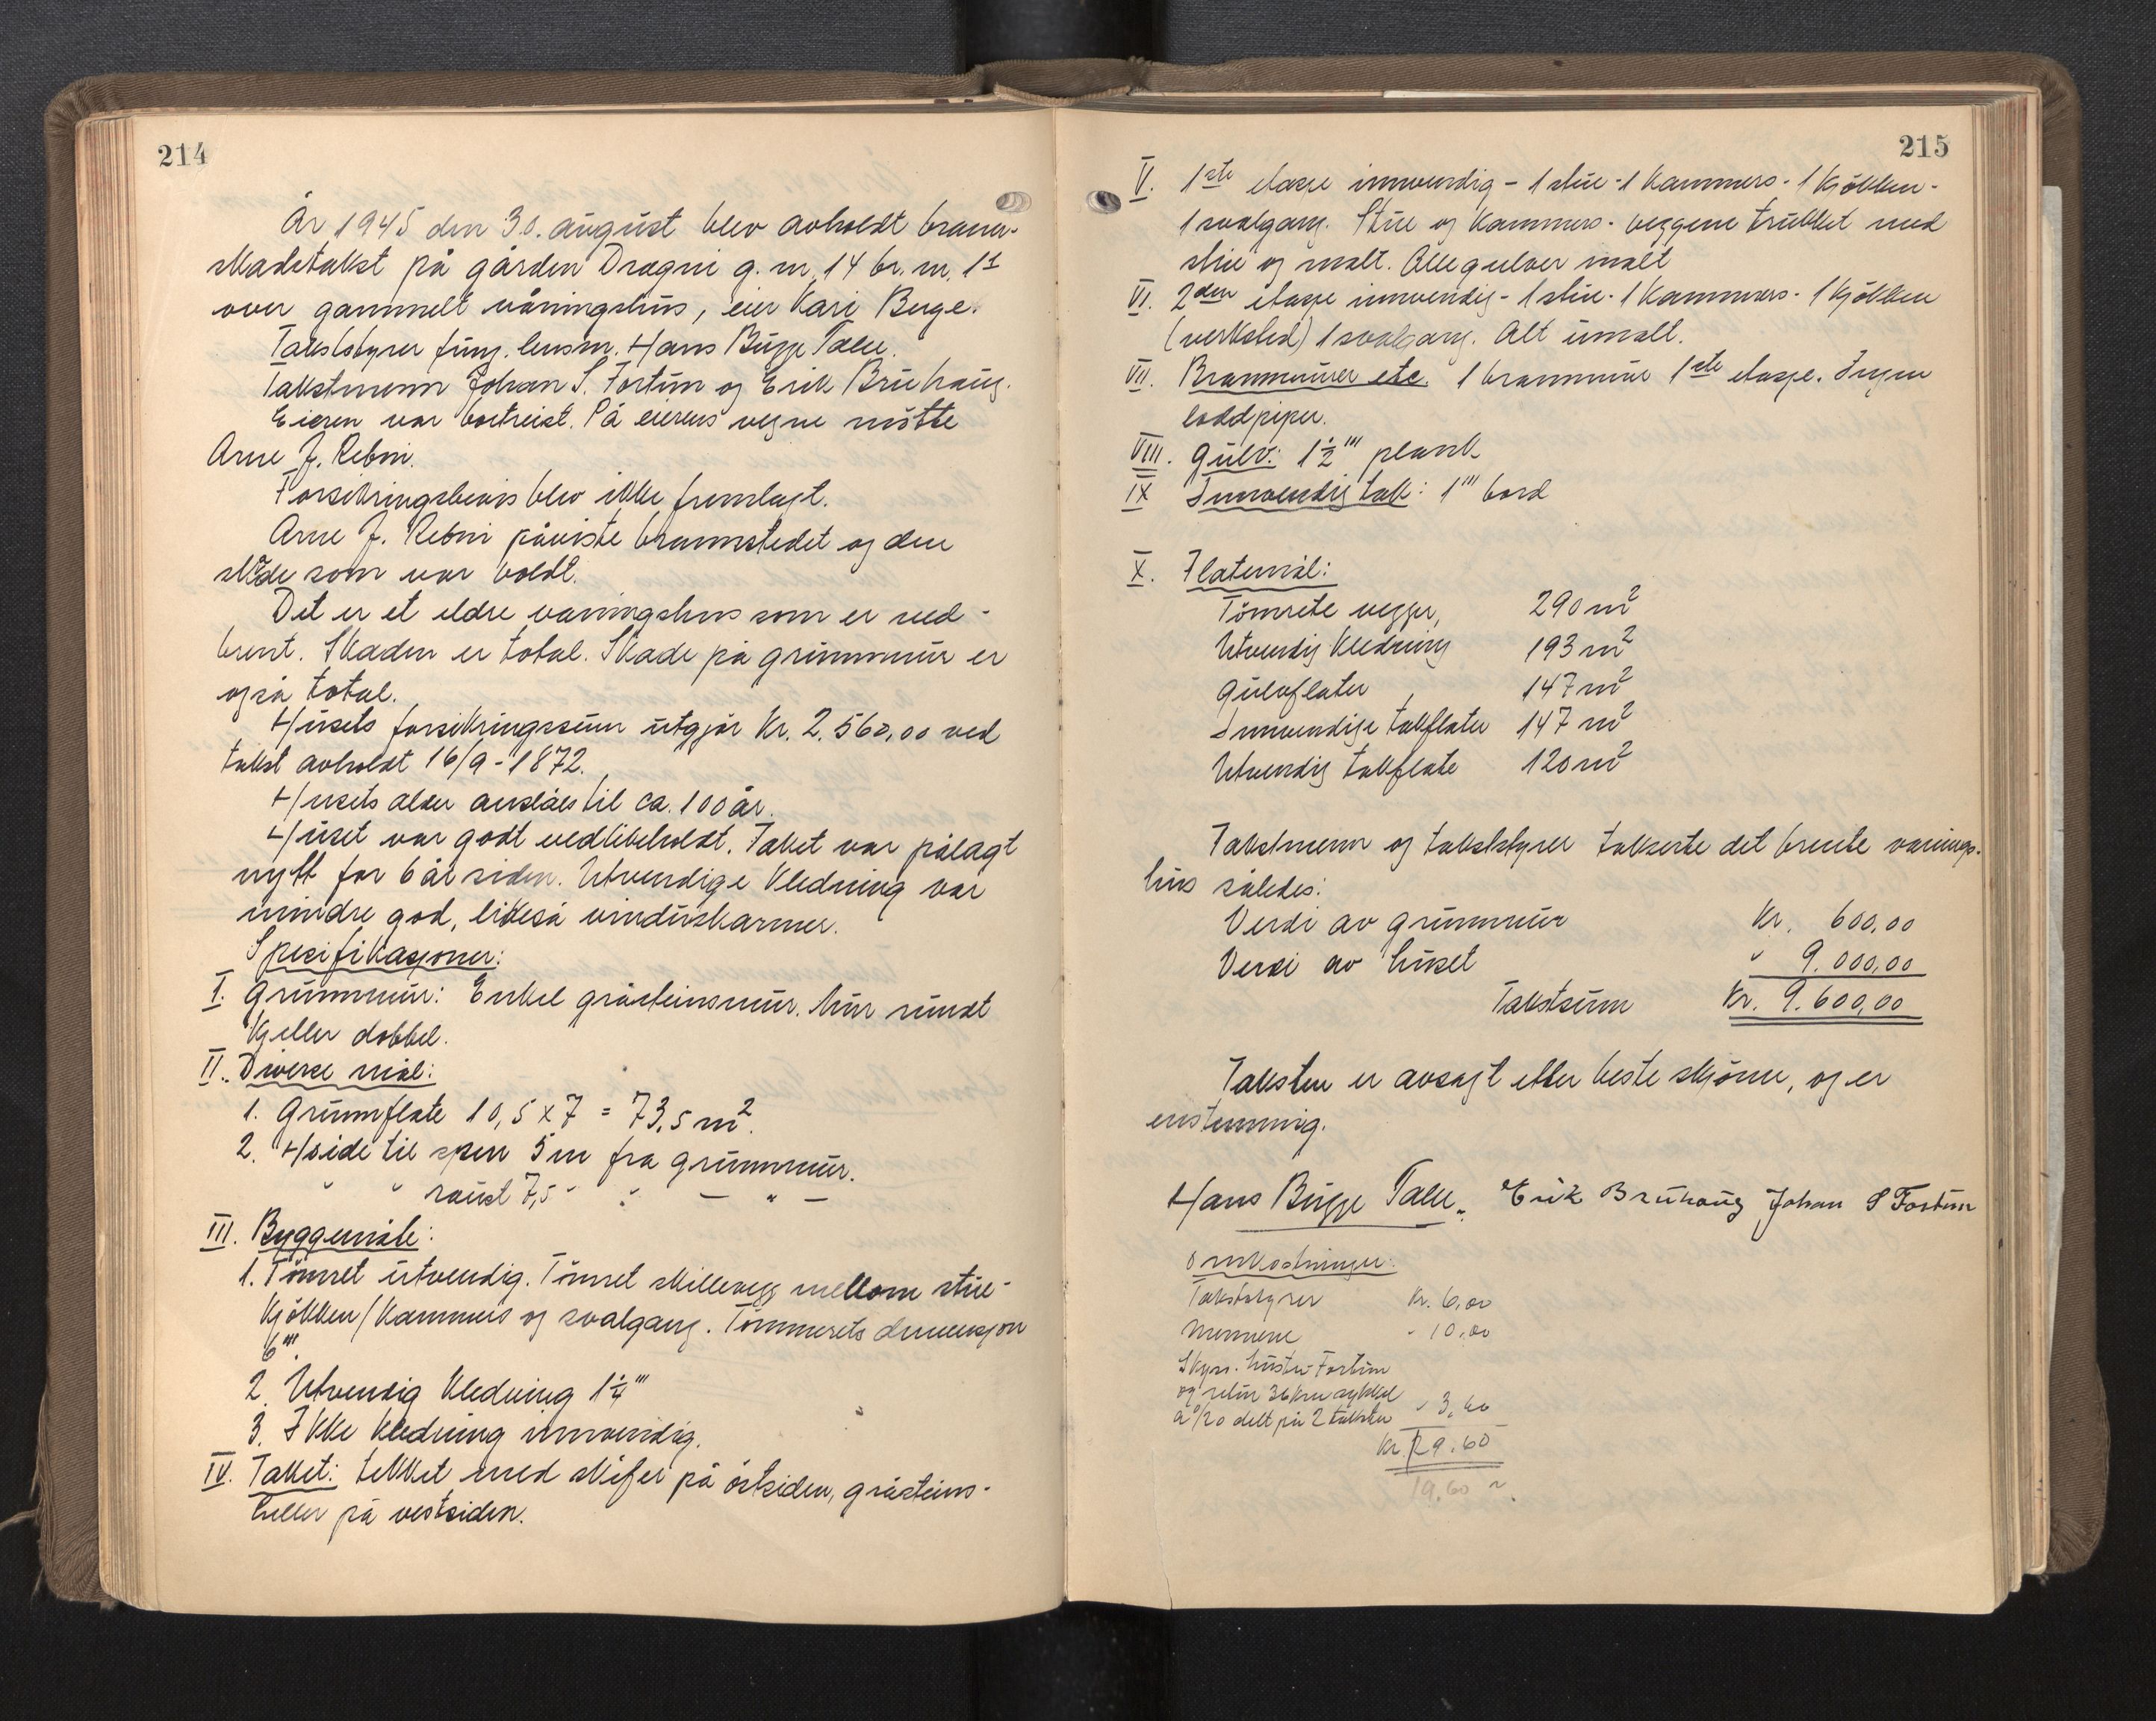 214
År 1945 den 30. august blev avholdt brann-
skadetakst på gården Drægni g. nr. 14 br. nr. 1
over gammelt våningshus, eier Kari Berge.
Takststyrer fung. lensm. Hans Bugge Talle.
Takstmenn Johan S. Fortun og Erik Bruhaug.
Eieren var bortreist. På eierens vegne møtte
Arne J. Rebni.
Forsikringsbevis blev ikke fremlagt.
Arne J. Rebni påviste brannstedet og den
skade som var voldt.
Det er et eldre vaningshus som er ned-
brent. Skaden er total. Skade på grunnmur er
også total.
Husets forsikringssum utgjør Kr. 2.560,00 ved
takst avholdt 16/9-1872.
Husets alder anslåes til ca. 100 år.
Huset var godt vedlikeholdt. Taket var pålagt
nytt for 6 år siden. Utvendige kledning var
mindre god, likeså vinduskarmer.
Spesifikasjoner:
I. Grunnmur: Enkel gråsteinsmur. Mur rundt
kjeller dobbel.
II. Diverse mål:
1. Grunnflate 10,5 x 7 = 73,5 m2.
2. Høide til spen 5 m fra grunnmur.
" " raust 7,5 " " — " —
III. Byggemåte:
1. Tømret utvendig. Tømret skillevegg mellom stue-
kjøkken/kammers og svalgang. Tømmerets dimensjon
6'''.
2. Utvendig kledning 1 1/4'''
3. Ikke kledning innvendig.
IV. Taket: tekket med skifer på østsiden, gråsteins-
heller på vestsiden.
215
V. 1ste etasje innvendig - 1 stue - 1 kammers - 1 kjøkken -
1 svalgang. Stue og kammers - veggene trukket med
strie og malt. Alle gulver malt
VI. 2den etasje innvendig - 1 stue - 1 kammers - 1 kjøkken
(verksted) 1 svalgang. Alt umalt.
VII. Brannmurer etc. 1 brannmur 1ste etasje. Ingen
loddpiper.
VIII. Gulv: 1 1/2''' plank
IX Innvendig tak: 1''' bord
X. Flatemål:
Tømrete vegger, 290 m2
Utvendig kledning 193 m2
Gulvflater 147 m2
Innvendige takflater 147 m2
Utvendig takflate 120 m2
Takstmenn og takststyrer takserte det brente vånings-
hus således:
Verdi av grunnmur Kr. 600,00
Verdi av huset " 9.000,00
Takstsum Kr. 9.600,00
Taksten er avsagt etter beste skjønn, og er
enstemmig.
Hans Bugge Talle. Erik Bruhaug Johan S Fortun
Omkostninger:
Takststyrer Kr. 6,00
Mennene " 10,00
Skyss. Fortun
og retur 36 km sykkel
a 0/20 delt på 2 takster " 3,60
Kr. 29.60
19,60